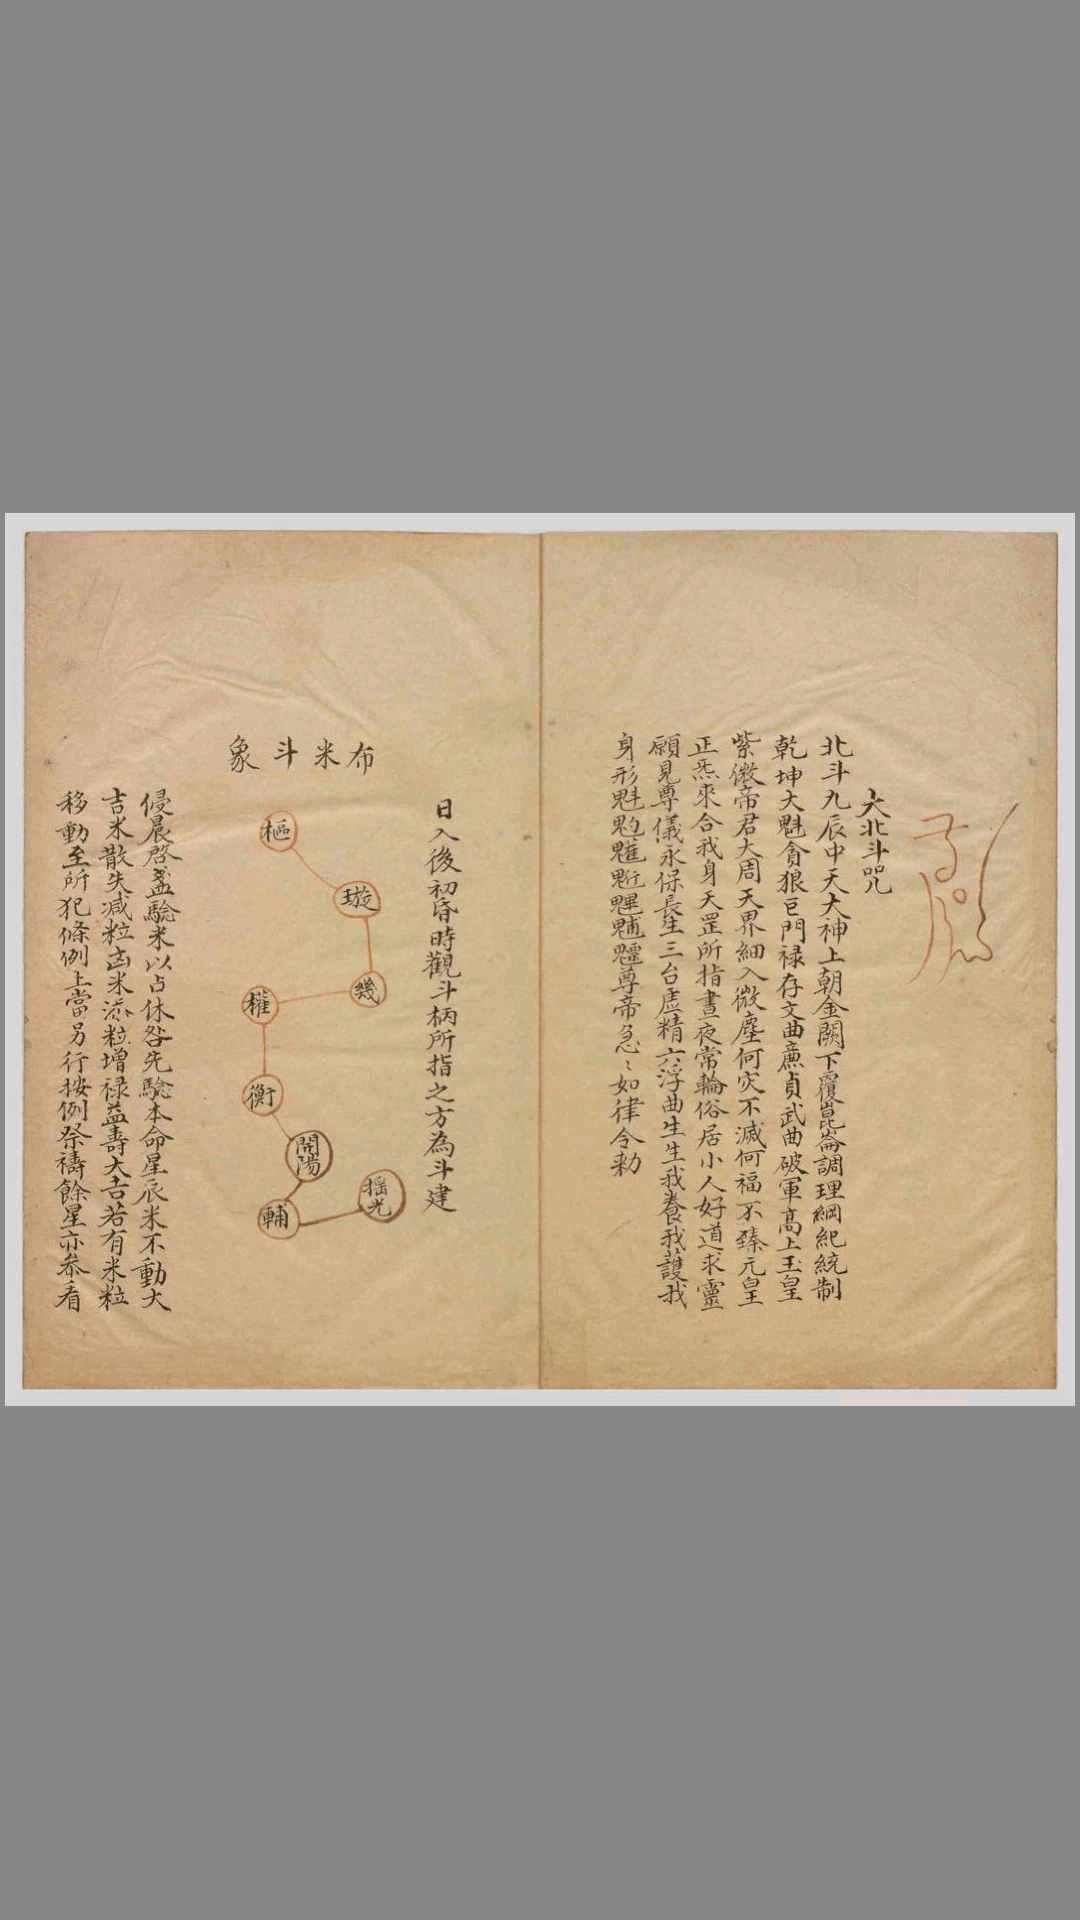 大北斗咒
北斗九辰中天大神上朝金闕下覆崑崙調理綱紀統制
乾坤大魁貪狼巨門禄存文曲亷貞武曲破軍高上玉皇
紫微帝君大周天界細入微塵何灾不滅何福不臻元皇
正炁來合我身天罡所指晝夜常輪俗居小人好道求靈
願見尊儀永保長生三台虛精六淳曲生生我養我護我
身形魁𩲃𩳐𩲵魓𩳌魒尊帝急〻如律令勅
日入後初昏時觀斗柄所指之方為斗建
布米斗象
樞
璇
幾
權
衡
開陽
輔
揺光
侵晨啓盞驗米以占休咎先驗本命星辰米不動大
吉米散失减粒凶米添粒增禄益壽大吉若有米粒
移動至所犯條例上當另行按例祭禱餘星亦叅看